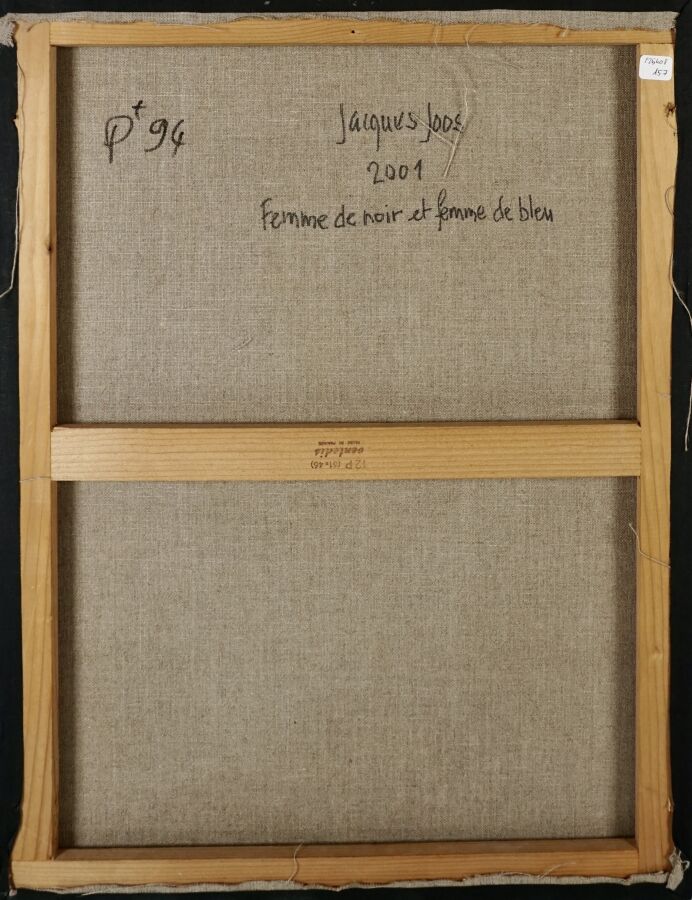 P+94
Jacques Joos
2001
Femme de noir et femme de bleu
157
12 P (61x46)